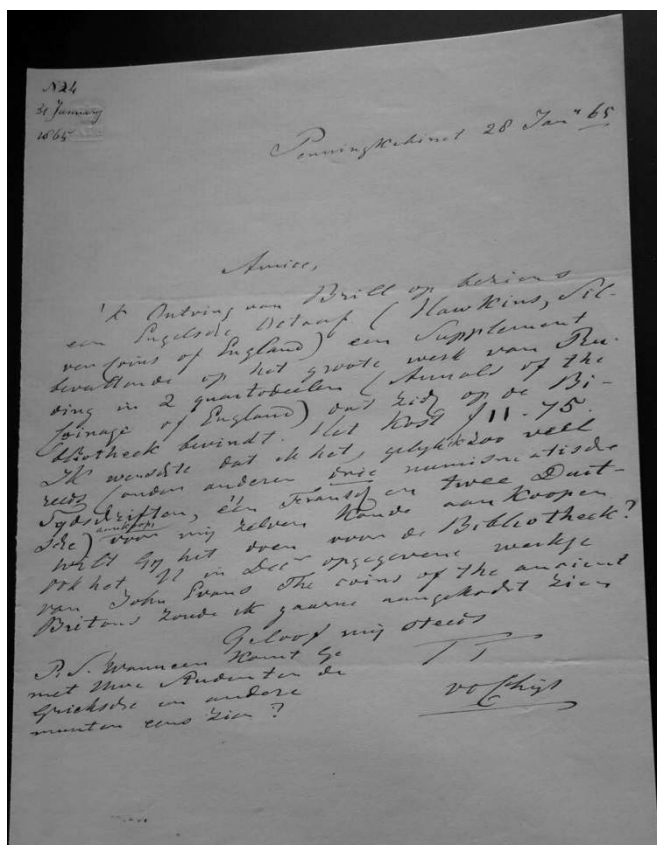 N 24
31 January
1865
Penningkabinet 28 Jan. 65
Amice,
'k Ontving van Brill op beziens
een Engelsch Octaaf. (Hawkins, Sil-
ver Coins of England) een Supplement
bevattende op het groote werk van Ru-
ding in 2 quartodeelen (Annals of the
Coinage of England) dat zich op de Bi-
bliotheek bevindt. Het kost f 11-75.
Ik wenschte dat ik het, gelijk zoo veel
reeds (onder anderen drie numismatische
Tydschriften, één Fransch en twee Duit-
sche) voor mij zelven konde aankoopen
wilt Gy het doen voor de Bibliotheek?
ook het in opgegevene werkje
van John Evans The coins of the ancient
Britons zoude ik gaarne aangekocht zien
Geloof mij steeds
TT
P.S. Wanneer komt Ge
met Uwe Studenten de
Grieksche en andere
munten eens zien?
vd Chijs